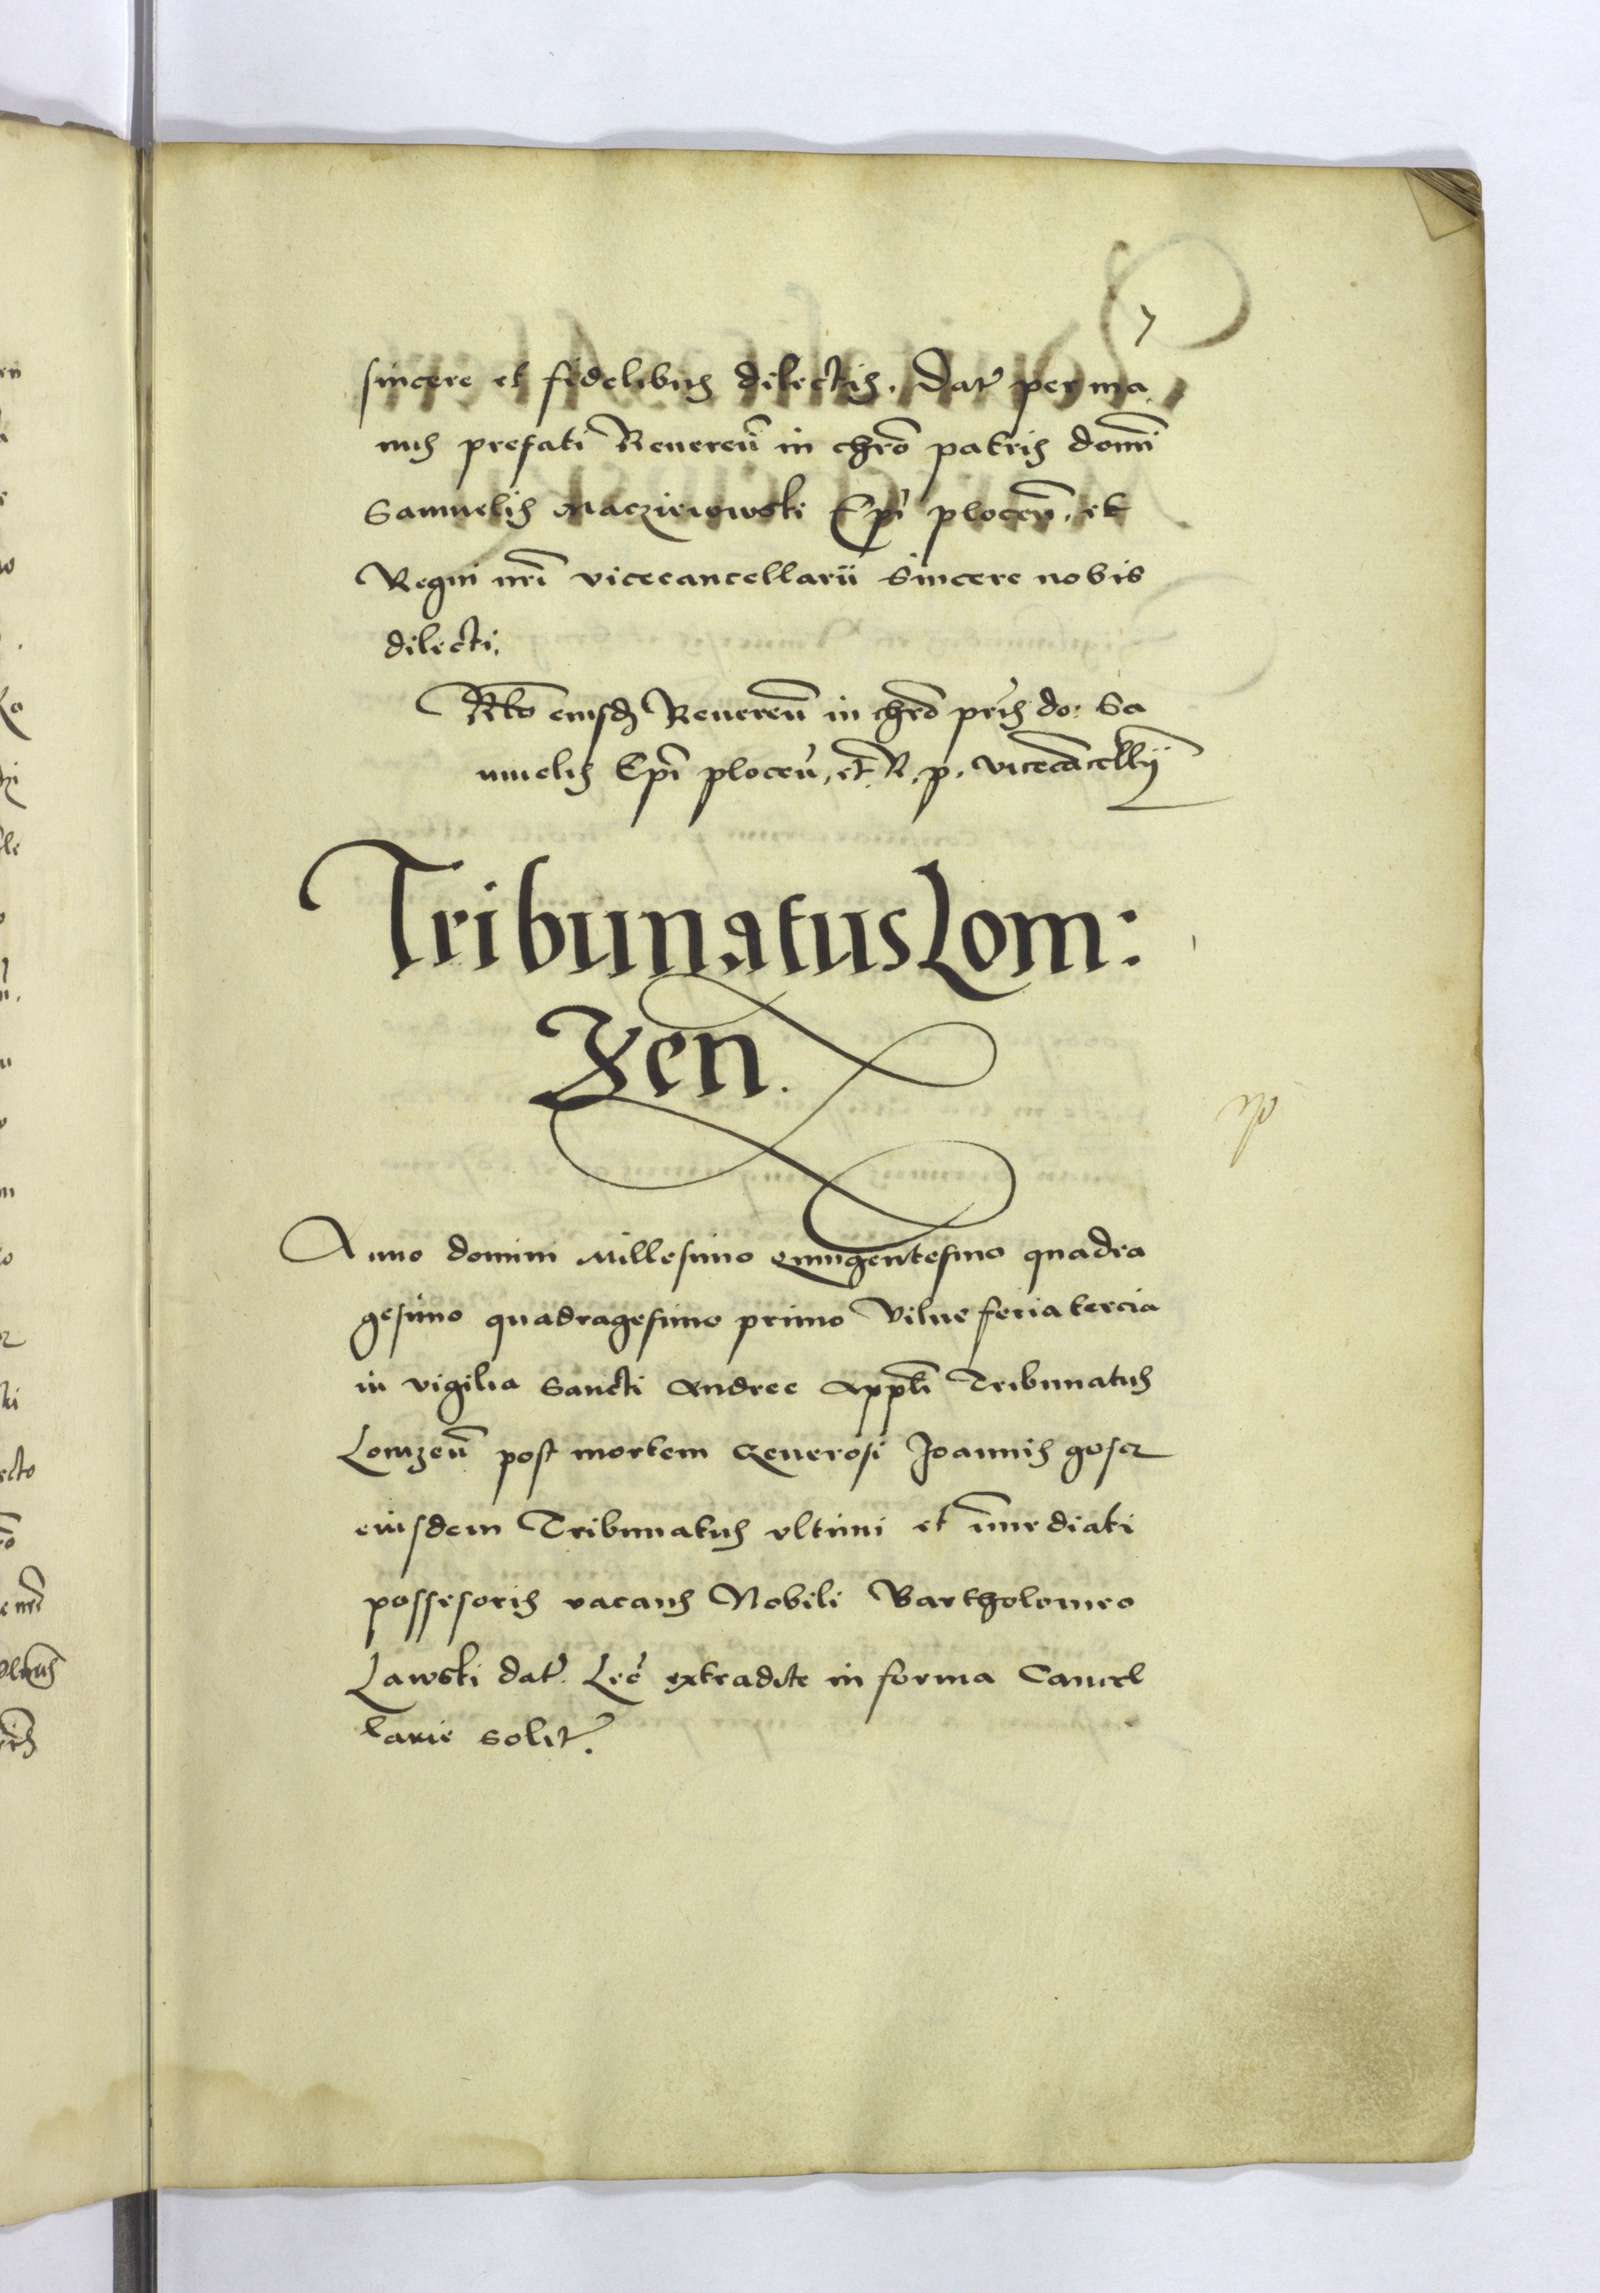 7
sincere et fidelibus dilectis. Dat per ma
nus prefati Reueren in chro patris domi
Samuelis Maczieiowski Epi plocen, et
Regni nri vicecancellarii Sincere nobis
dilecti.
Rlo eiusd Reueren in chro pris do: Sa
muelis Epi plocen, et R. p. vicecancellij
Tribunatus Lom:
zen.
Anno domini Millesimo quingentesimo quadra
gesimo quadragesimo primo Vilne feria tercia
in vigilia Sancti Andree Appli Tribunatus
Lomzen post mortem Generosi Joannis
eiusdem Tribunatus vltimi et immediati
possessoris vacans Nobili Bartholomeo
Lawski dat. Lre extradite in forma Cancel
larie solit.